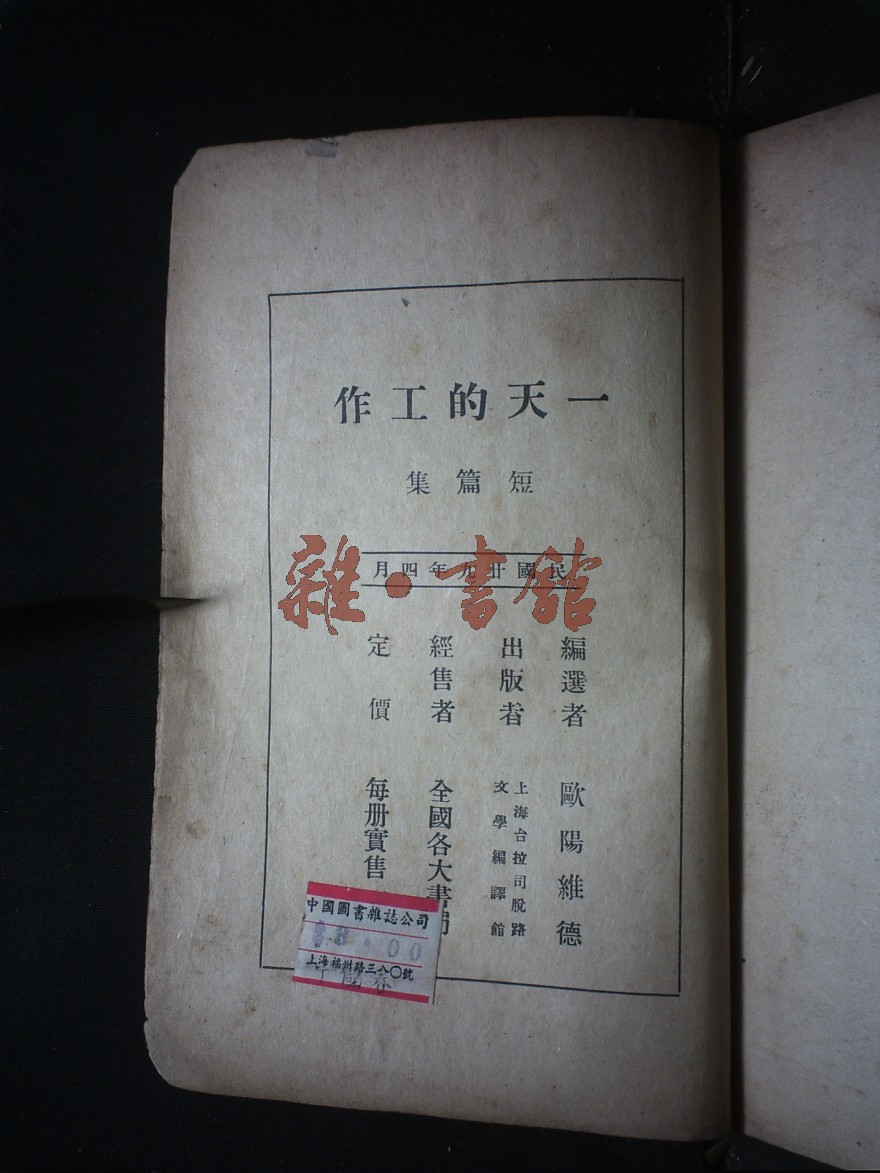 一天的工作
短篇集
民國廿九年四月
編選者 歐陽維德
出版者 上海台拉司脫路
文學編譯館
經售者 全國各大書局
定價 每册實售
中國圖書雜誌公司
00
上海福州路三八〇號
雜·書館